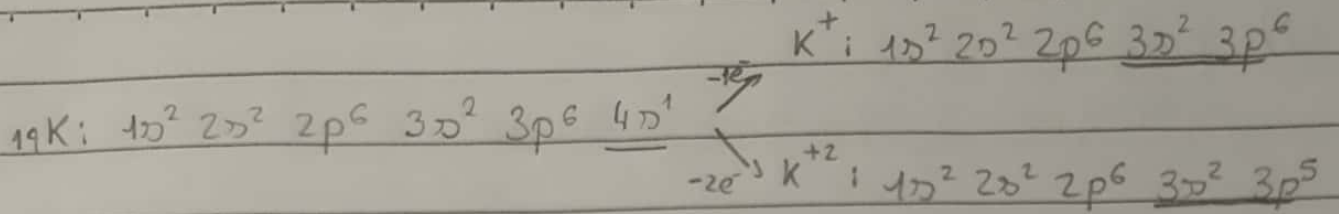 K⁺: 1s² 2s² 2p⁶ 3s² 3p⁶
-1e⁻
₁₉K: 1s² 2s² 2p⁶ 3s² 3p⁶ 4s¹
-2e⁻ K⁺²: 1s² 2s² 2p⁶ 3s² 3p⁵